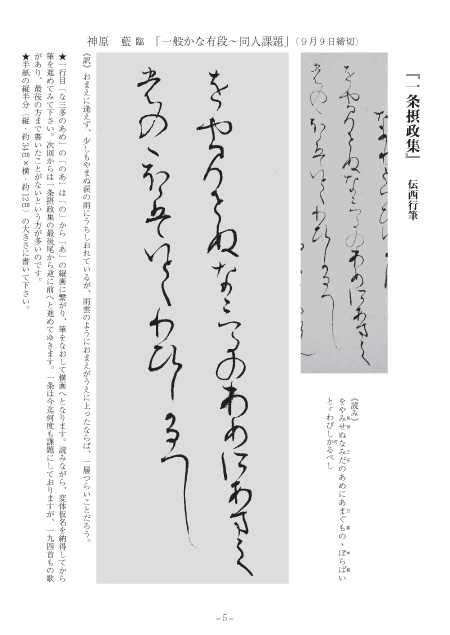 神原　藍 臨　「一般かな有段～同人課題」（９月９日締切）
『一条摂政集』　伝西行筆
《読み》
をやみせぬなみだのあめにあまぐものゝぼらばい
とゞわびしかるべし
《訳》おまえに逢えず、少しもやまぬ涙の雨にうちしおれているが、雨雲のようにおまえがうえに上ったならば、一層つらいことだろう。
★一行目「な三多のあめ」の「のあ」は「の」から「あ」の縦画に繋がり、筆をなおして横画へとなります。読みながら、変体仮名を納得してから
筆を進めてみて下さい。次回からは一条摂政集の最後尾から逆に前へと進めてゆきます。一条は今迄何度も課題にしておりますが、一九四首もの歌
があり、最後の方まで書いたことがないという方が多いのです。
★半紙の縦半分（縦・約34㎝×横・約12㎝）の大きさに書いて下さい。
－5－